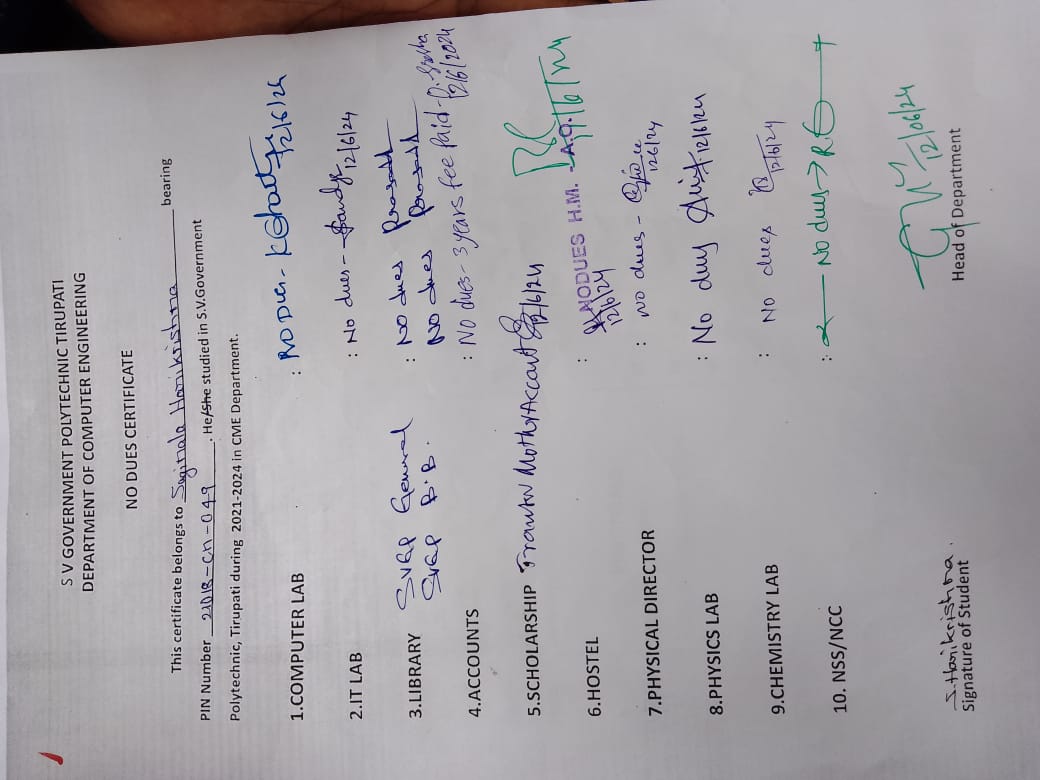 S V GOVERNMENT POLYTECHNIC TIRUPATI
DEPARTMENT OF COMPUTER ENGINEERING
NO DUES CERTIFICATE
This certificate belongs to Sugirala Harikrishna bearing
PIN Number 21018-CM-049. He/She studied in S.V.Government
Polytechnic, Tirupati during 2021-2024 in CME Department.
1.COMPUTER LAB : NO Dues - 12/6/24
2.IT LAB : No dues - 12/6/24
3.LIBRARY SVGP General : No dues
SVGP B.B. No dues
4.ACCOUNTS : No dues - 3 years fee Paid - 12/6/2024
5.SCHOLARSHIP Mother Account 12/6/24
6.HOSTEL : NODUES H.M. - A.O.
12/6/24
7.PHYSICAL DIRECTOR : no dues - 12/6/24
8.PHYSICS LAB : No duy 12/6/24
9.CHEMISTRY LAB : No dues 12/6/24
10. NSS/NCC : NO duy
12/06/24
S.Harikrishna.
Signature of Student Head of Department